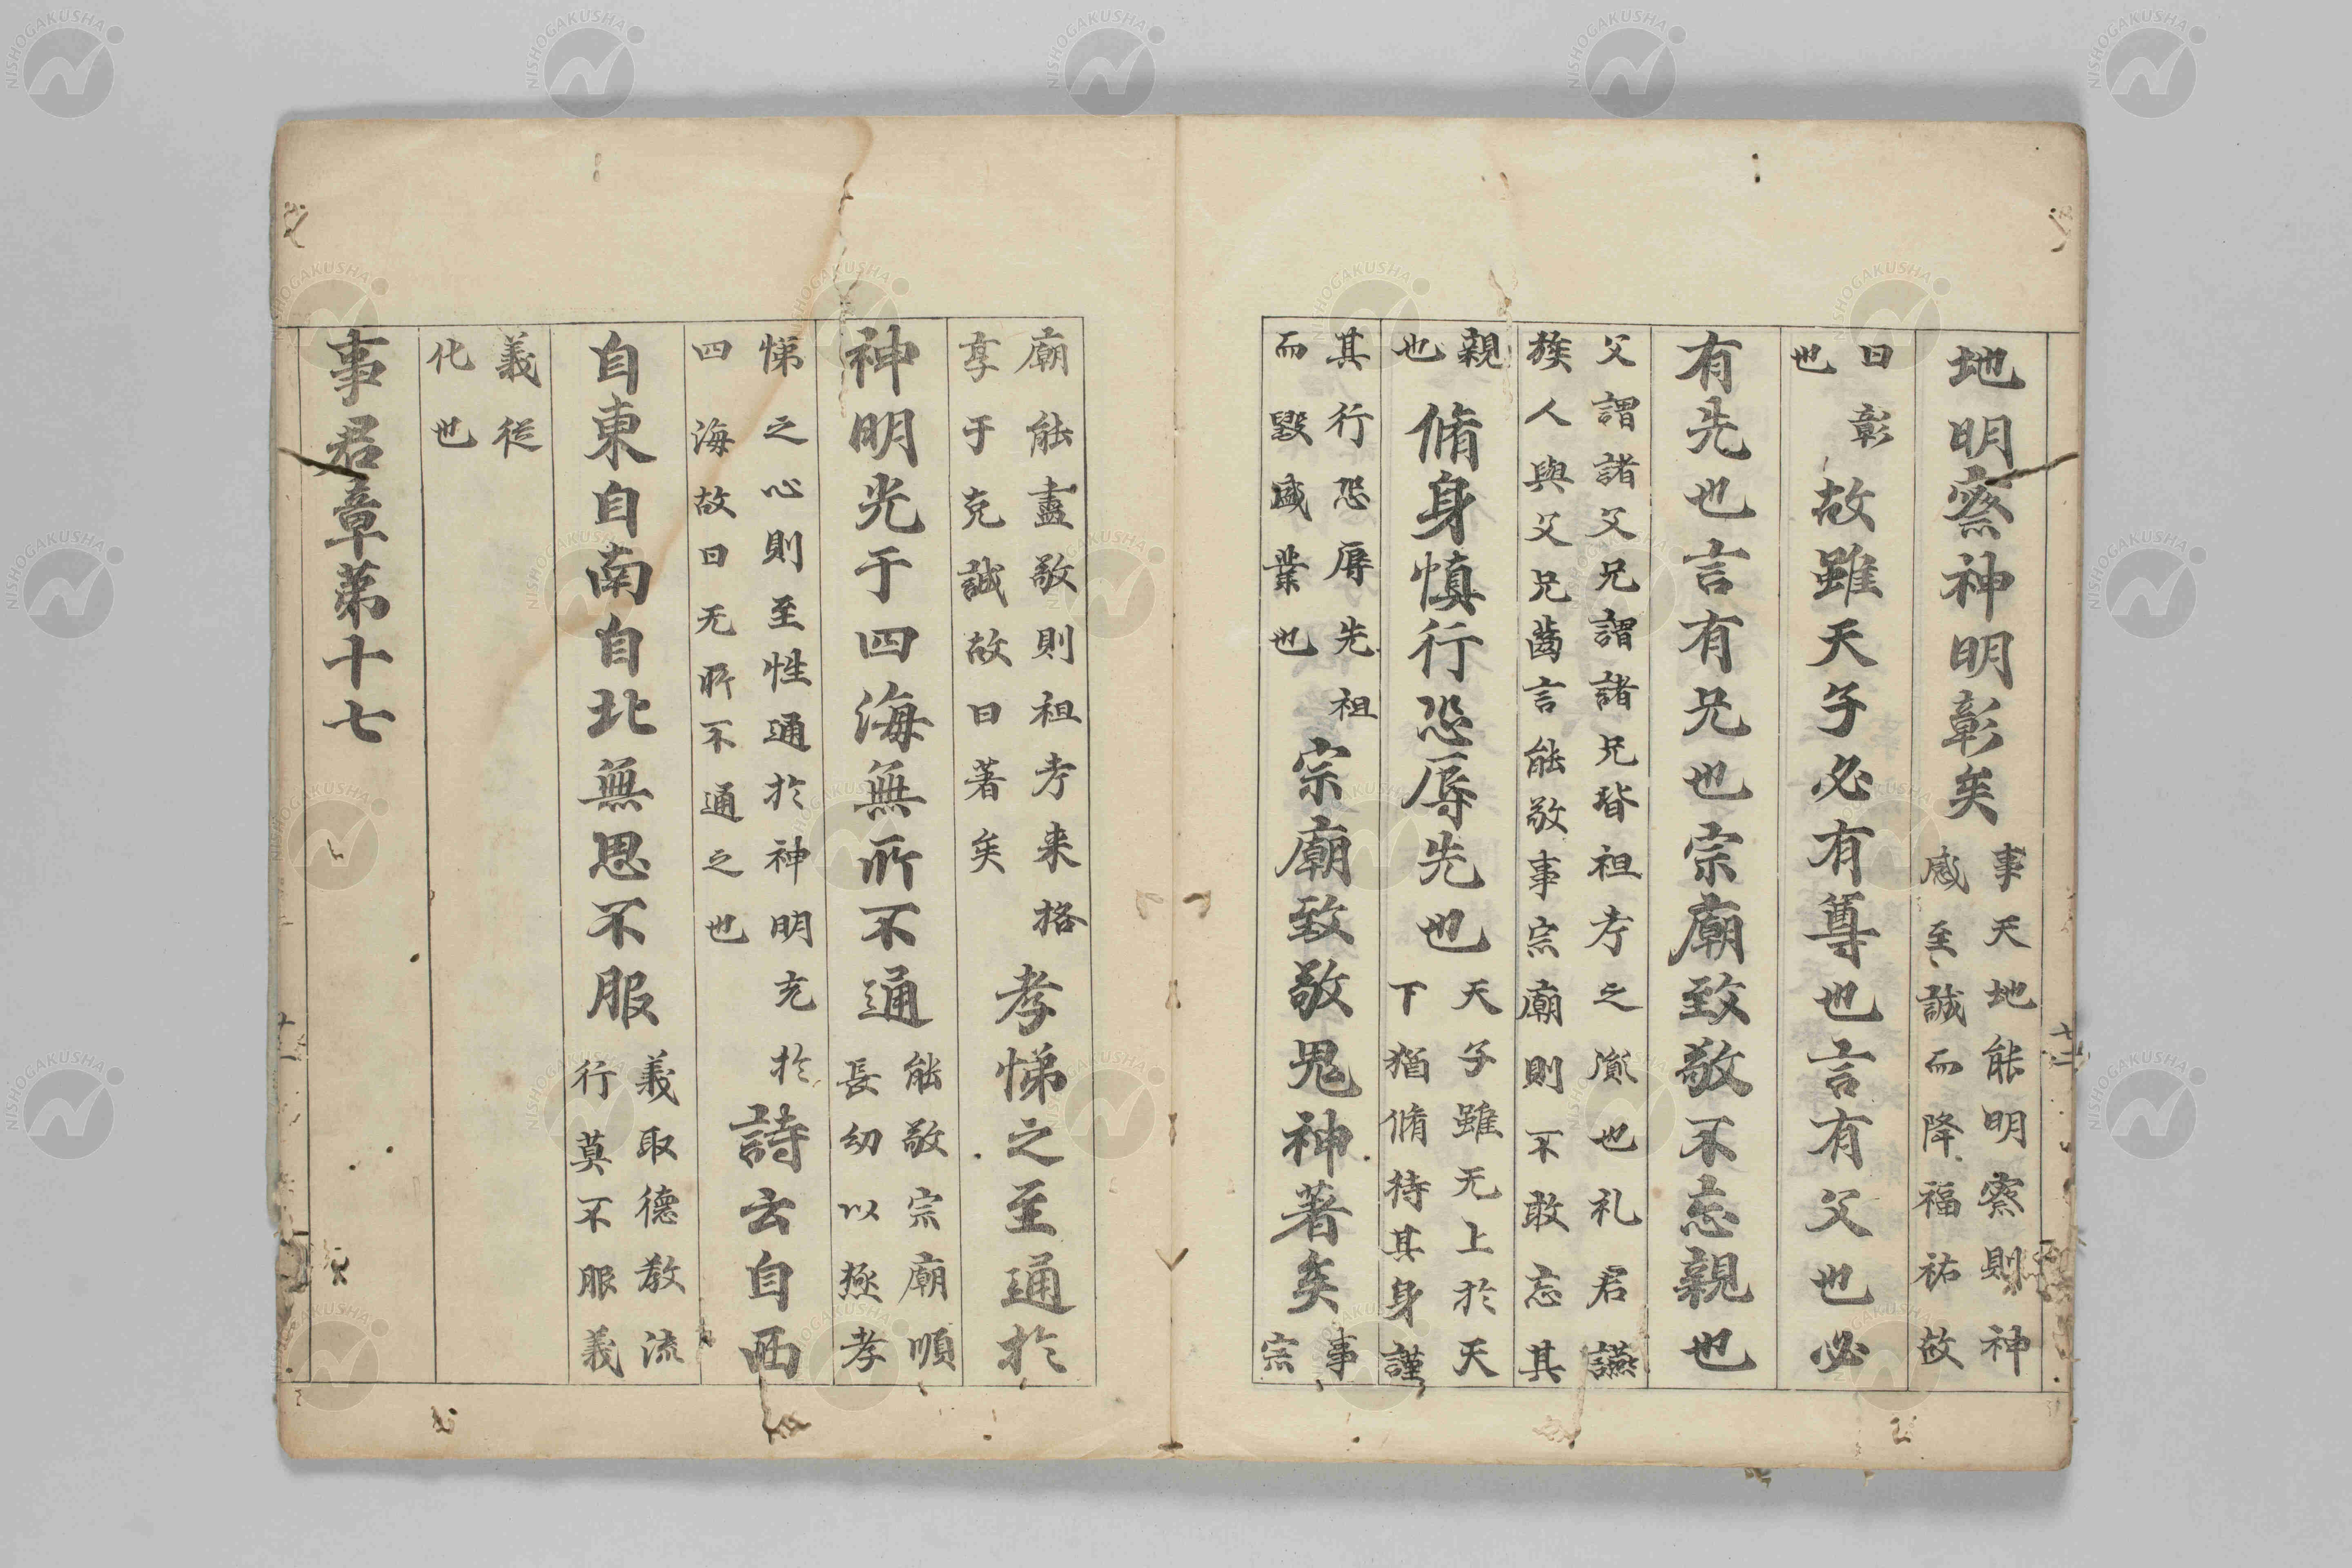 地明察神明彰矣事天地能明察則神
感至誠而降福祐故
曰彰
也
故雖天子必有尊也言有父也必
有先也言有兄也宗廟致敬不忘親也
父謂諸父兄謂諸兄皆祖考之胤也礼君讌
族人與父兄齒言能敬事宗廟則不敢忘其
親
也
脩身慎行恐辱先也天子雖无上於天
下猶脩待其身謹
其行恐辱先祖
而毀盛業也
宗廟致敬鬼神著矣事
宗
廟能盡敬則祖考来格
享于克誠故曰著矣
孝悌之至通於
神明光于四海無所不通能敬宗廟順
長幼以極孝
悌之心則至性通於神明充於
四海故曰无所不通之也
詩云自西
自東自南自北無思不服義取德教流
行莫不服義
義從
化也
事君章第十七
NISHOGAKUSHA